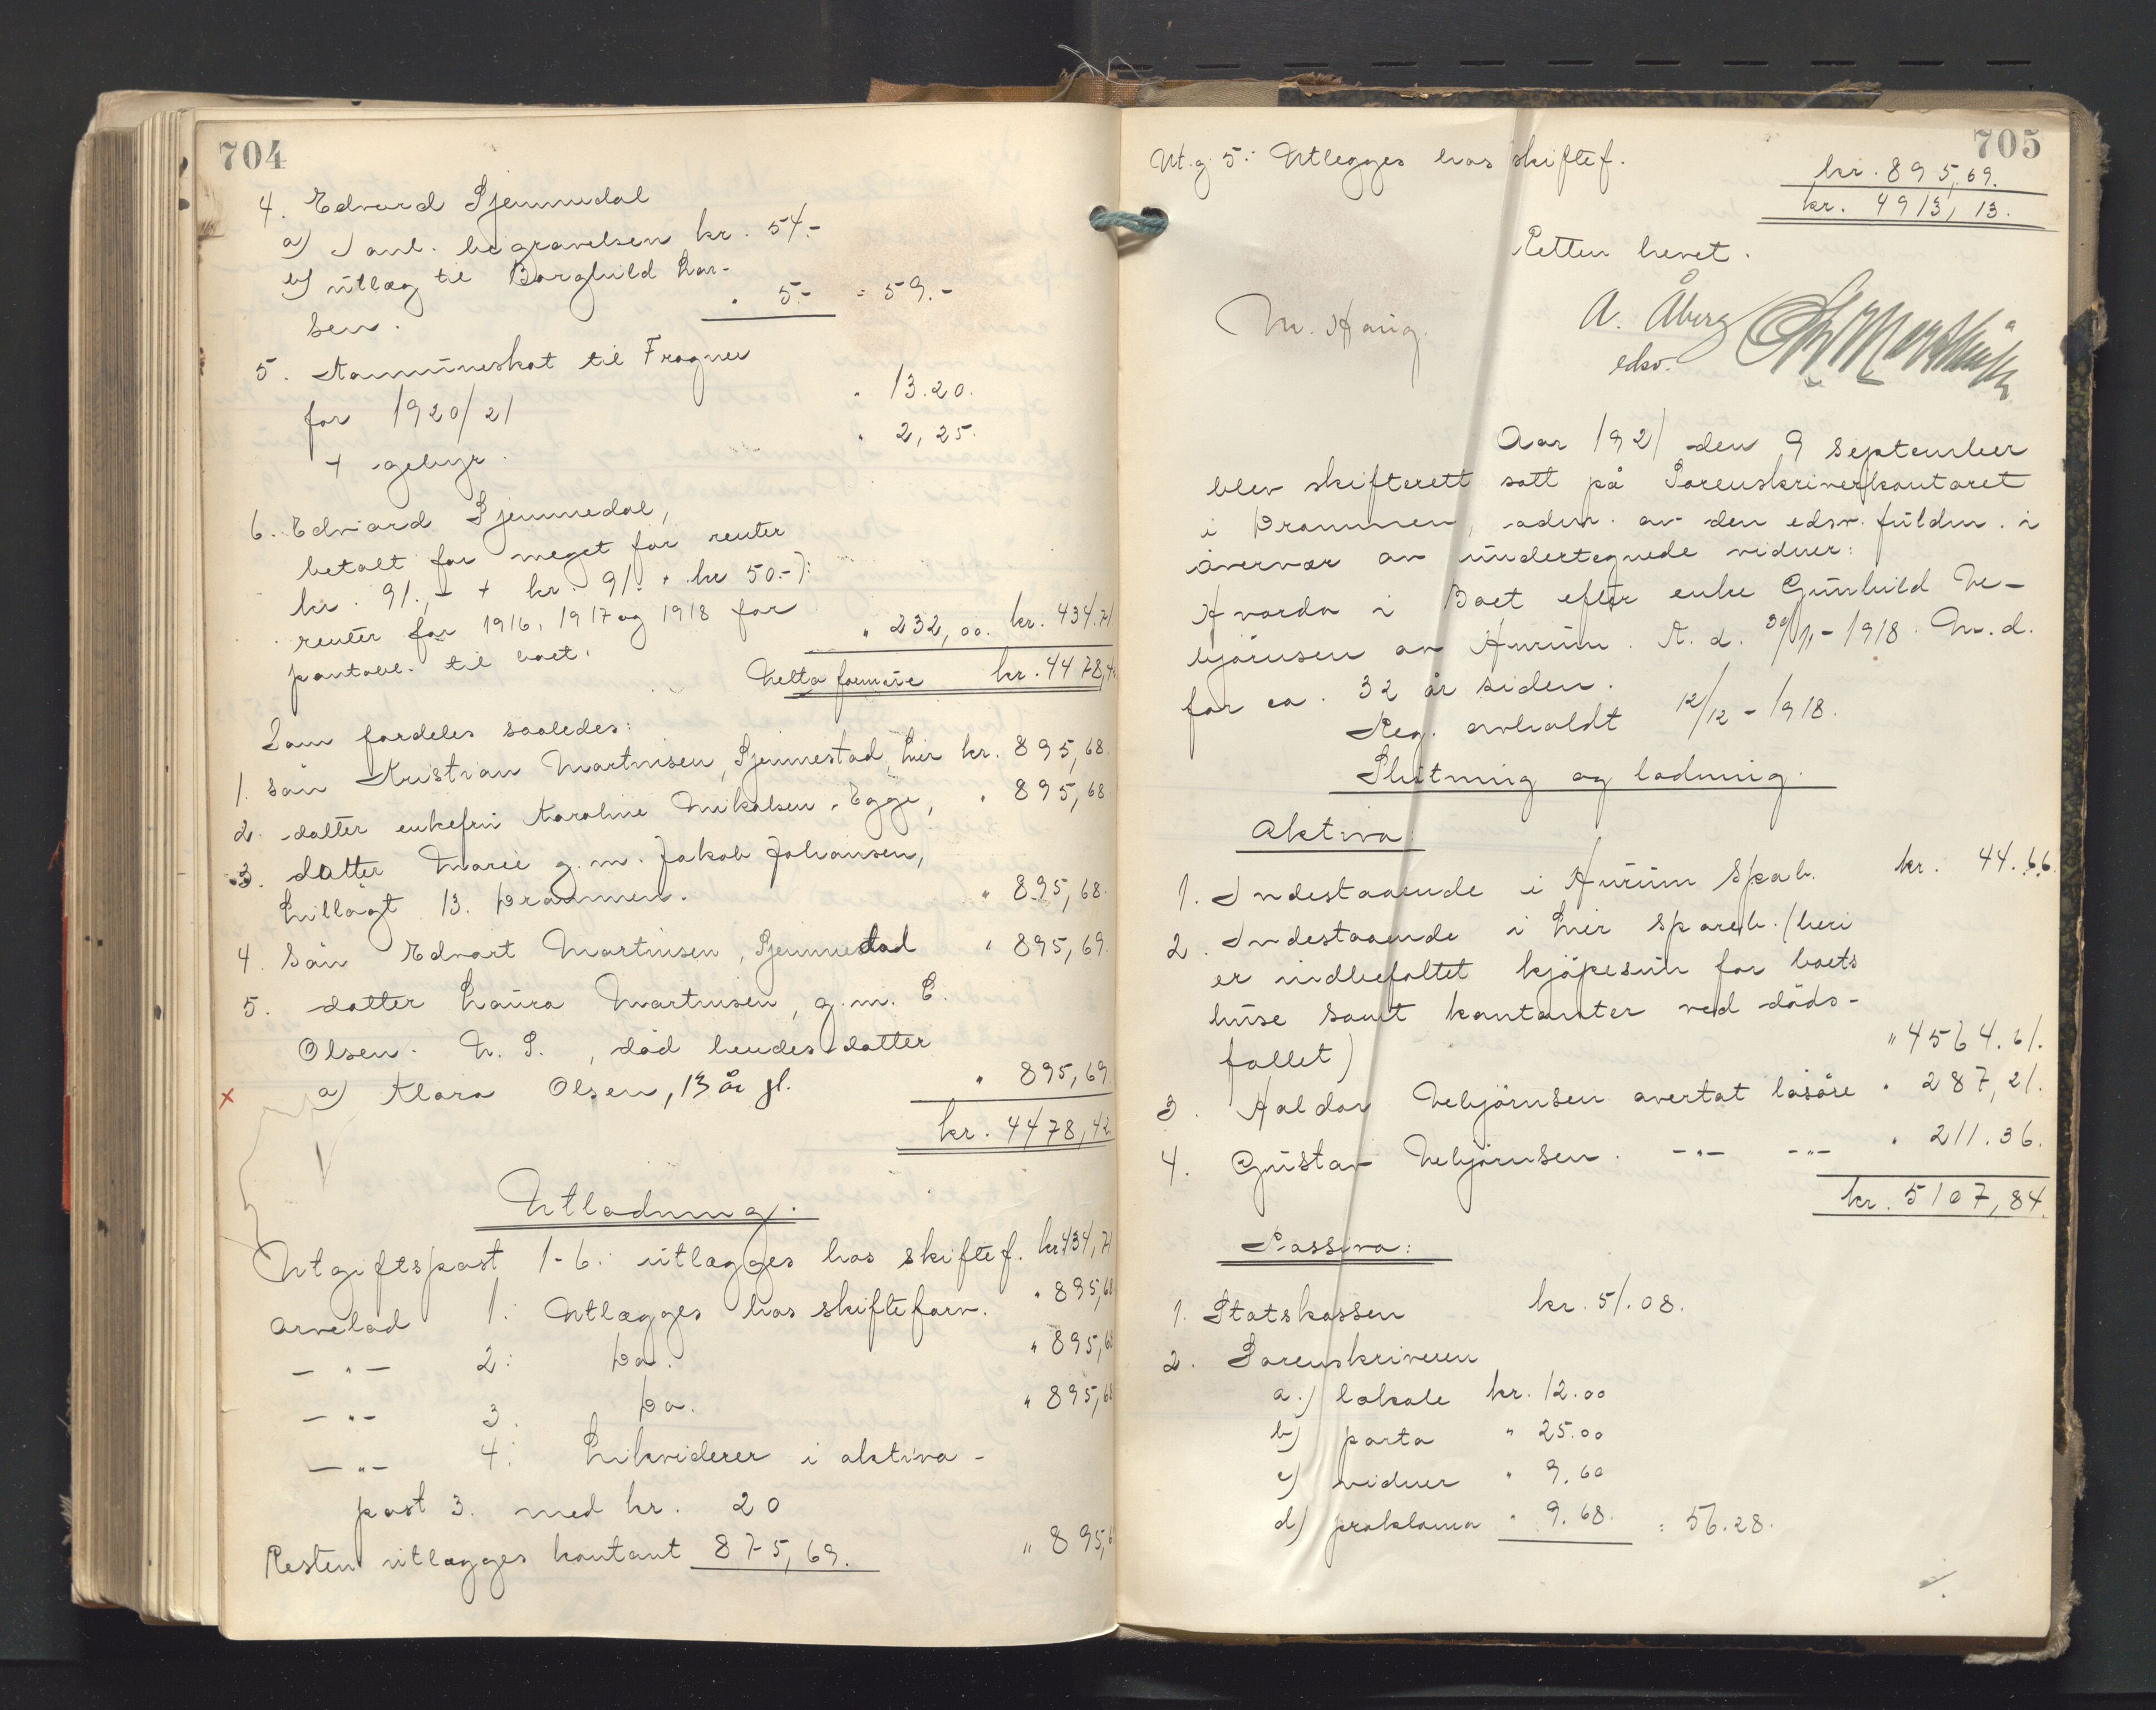 704
4. Edvard Gjennedal
a) I anl. begravelsen kr. 54.-
b) utlæg til Borghild Lar-
sen. " 5.- = 59.-
5. Kommuneskat til Frogner
for 1920/21 " 13.20.
+ gebyr. " 2,25.
6. Edvard Gjennedal,
betalt for meget for renter
kr. 91,- + kr. 91.- + kr 50.-):
renter for 1916, 1917 og 1918 for
pantobl. til boet. " 232,00. kr. 434.71
Netto formue kr. 4478,42
Som fordeles saaledes:
1. sön Kristian Martinsen, Gjennestad, Lier kr. 895,68
2. datter enkefru Karoline Mikalsen, Egge, " 895,68
3. datter Marie g.m. Jakob Johansen,
Lillögt. 13. Drammen. " 895,68.
4. Sön Edvart Martinsen, Gjennestad " 895,69.
5. datter Laura Martinsen, g.m. C.
Olsen. N. S., död hendes datter
x a) Klara Olsen, 13 år gl. " 895,69
kr. 4478,42
Utlodning.
Utgiftspost 1-6: utlægges hos skiftef. kr 434,71
Arvelod 1: Utlægges hos skifteforv. " 895,68
- " - 2: Do. " 895,68
- " - 3. Do. " 895,68
- " - 4: Likviderer i aktiva-
post 3. med kr. 20
Resten utlægges kontant 875,69. " 895,6
705
Ut.g. 5: Utlegges hos skiftef. kr. 895,69.
kr. 4913,13.
Retten hevet.
M. Haug. A. Åberg
edsv.
Aar 1921 den 9 September
blev skifterett satt på Sorenskriverkontoret
i Drammen, adm. av den edsv. fuldm. i
övervær av undertegnede vidner:
Hvorda i Boet efter enke Gunhild Ve-
björnsen av Hurum. A. d. 30/11-1918. M.d.
for ca. 32 år siden.
Reg. avholdt 12/12-1918.
Slutning og lodning.
Aktiva:
1. Indestaaende i Hurum Spab. kr. 44.66
2. Indestaaende i Lier spareb. (heri
er indbefattet kjöpesum for boets
huse samt kontanter ved döds-
fallet) " 4564.61.
3. Haldor Vebjörnsen overtat lösöre " 287,21.
4. Gustav Vebjörnsen. -"- -"- " 211.36.
kr. 5107,84.
Passiva:
1. Statskassen kr. 51.08.
2. Sorenskriveren
a.) lokale kr. 12.00
b) porto " 25.00
c) vidner " 9.60
d) proklama " 9.68. = 56.28.